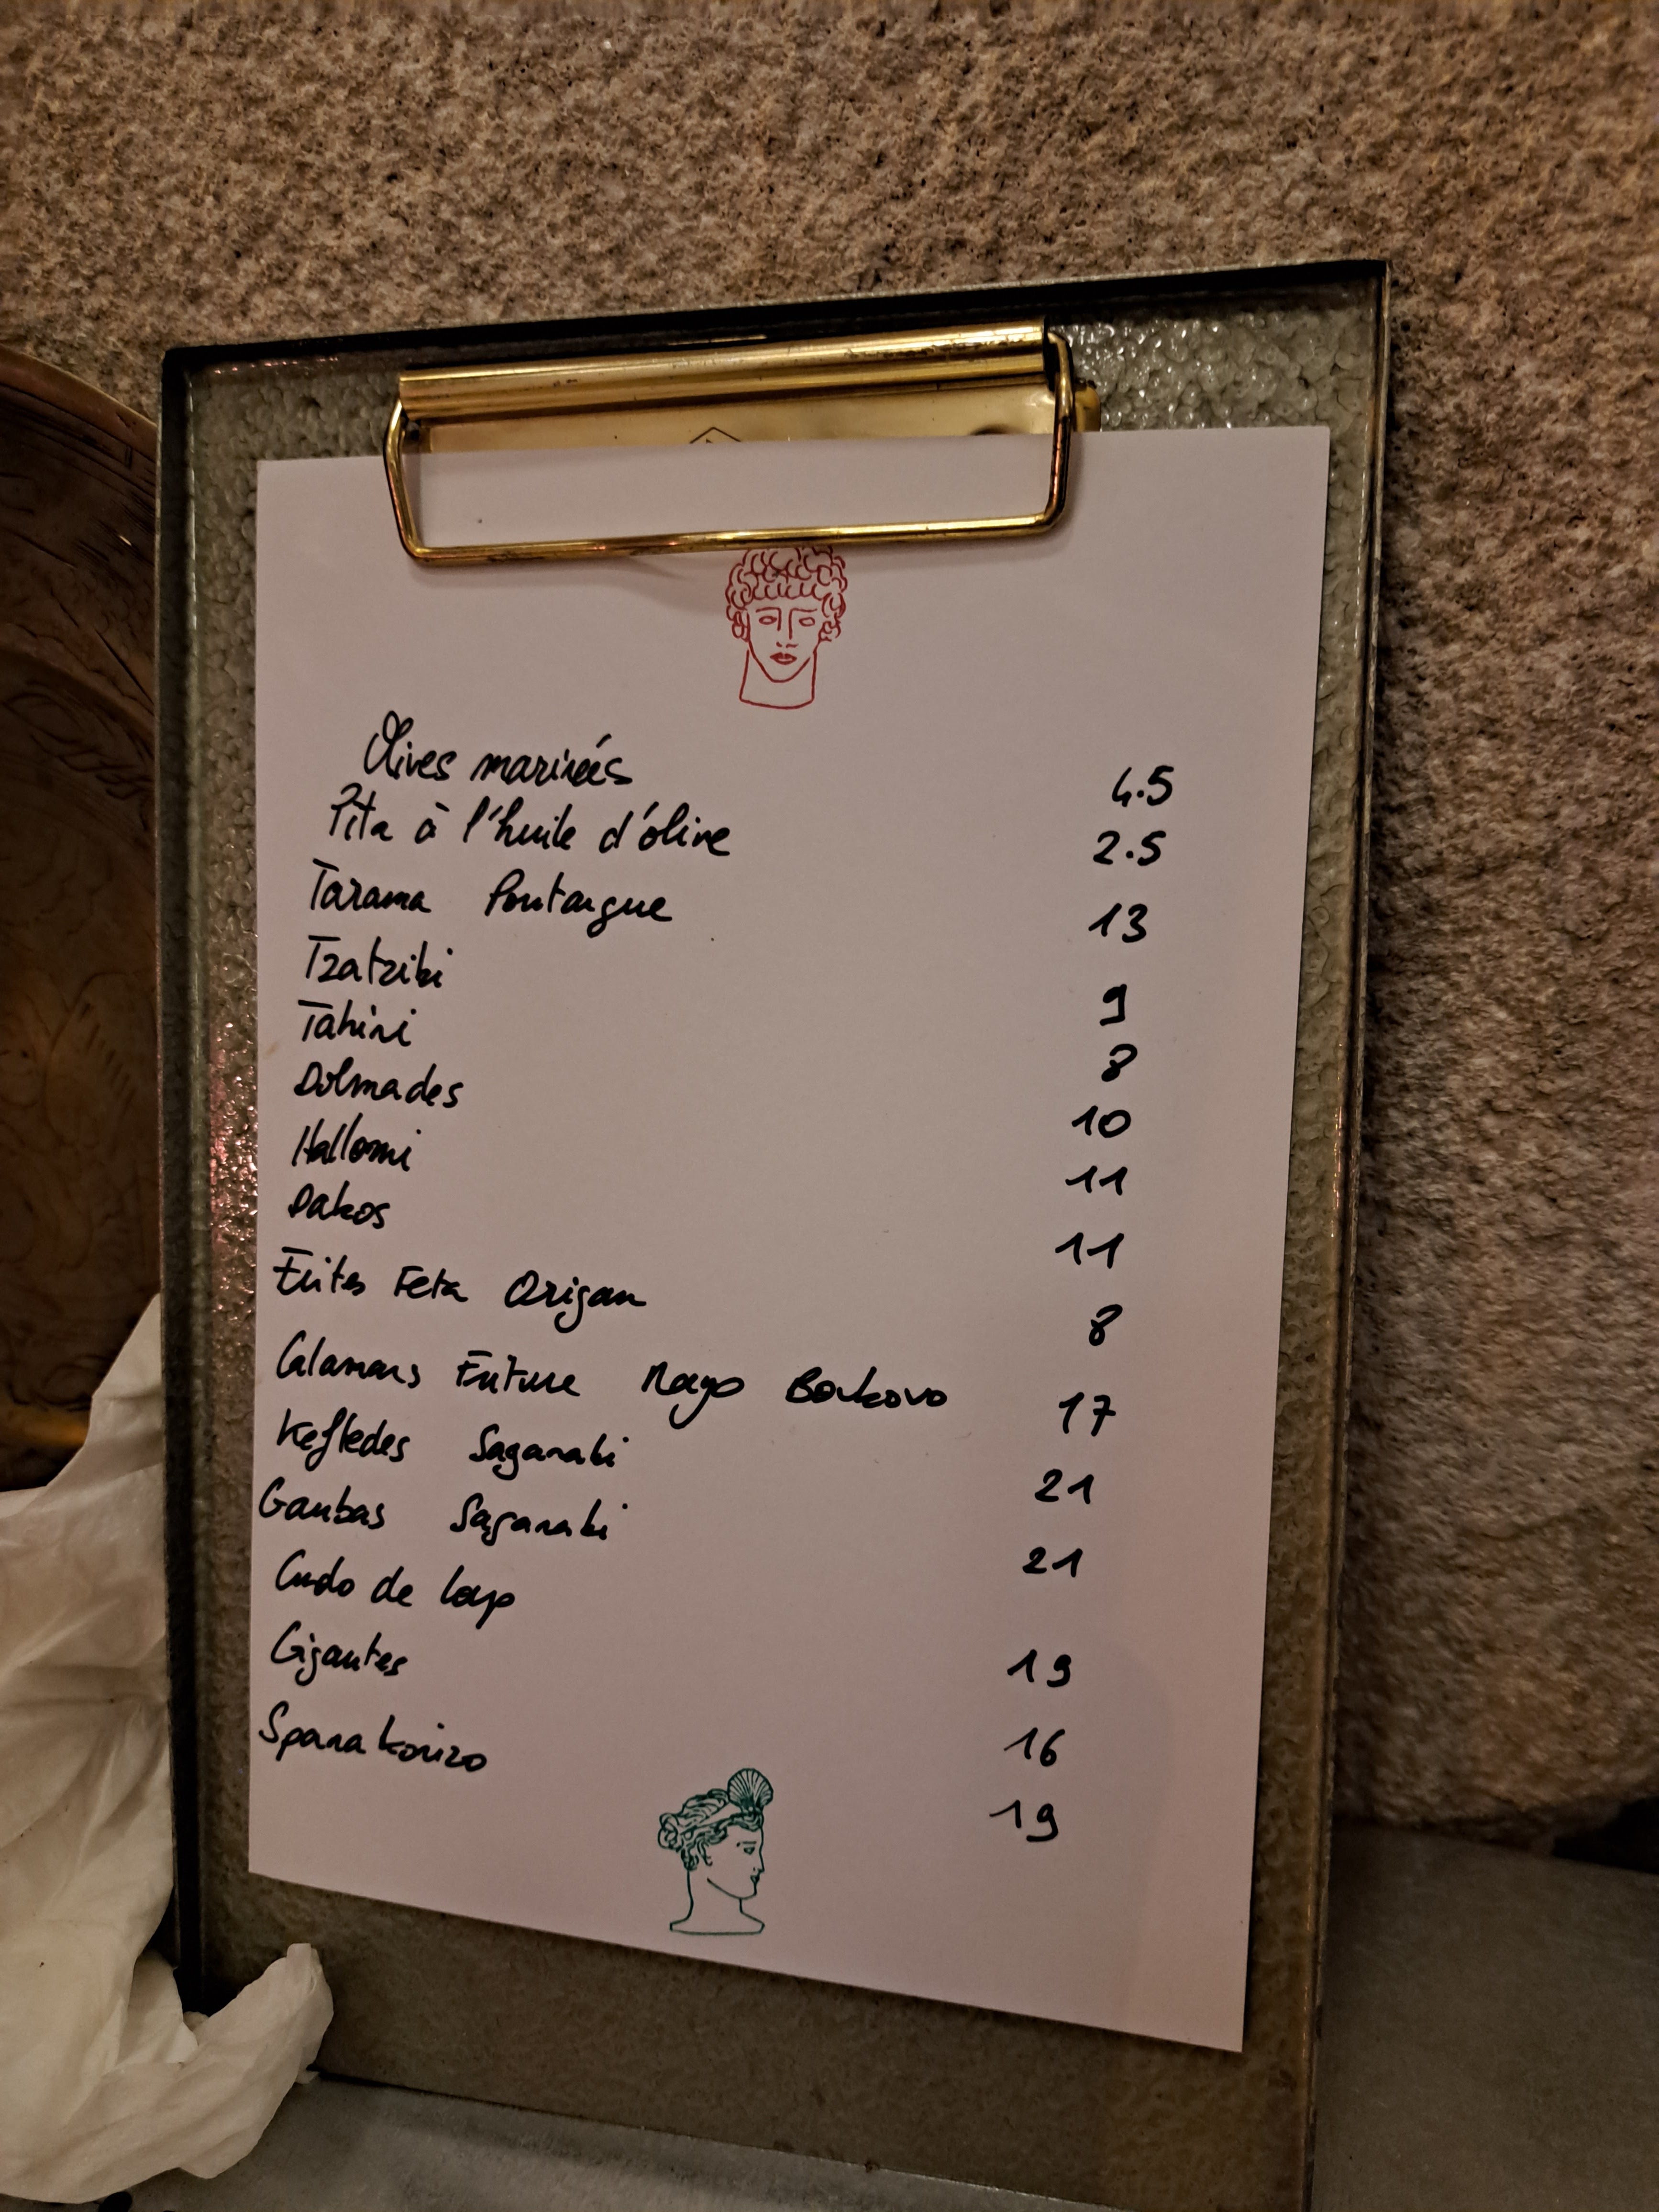 Olives marinées 4.5
Pita à l'huile d'olive 2.5
Tarama Poutargue 13
Tzatziki 9
Tahini 8
Dolmades 10
Halloumi 11
Dakos 11
Frites Feta Origan 8
Calamars Friture Mayo Boukovo 17
Keftedes Saganaki 21
Gambas Saganaki 21
de 19
Gigantes 16
Spanakorizo 19